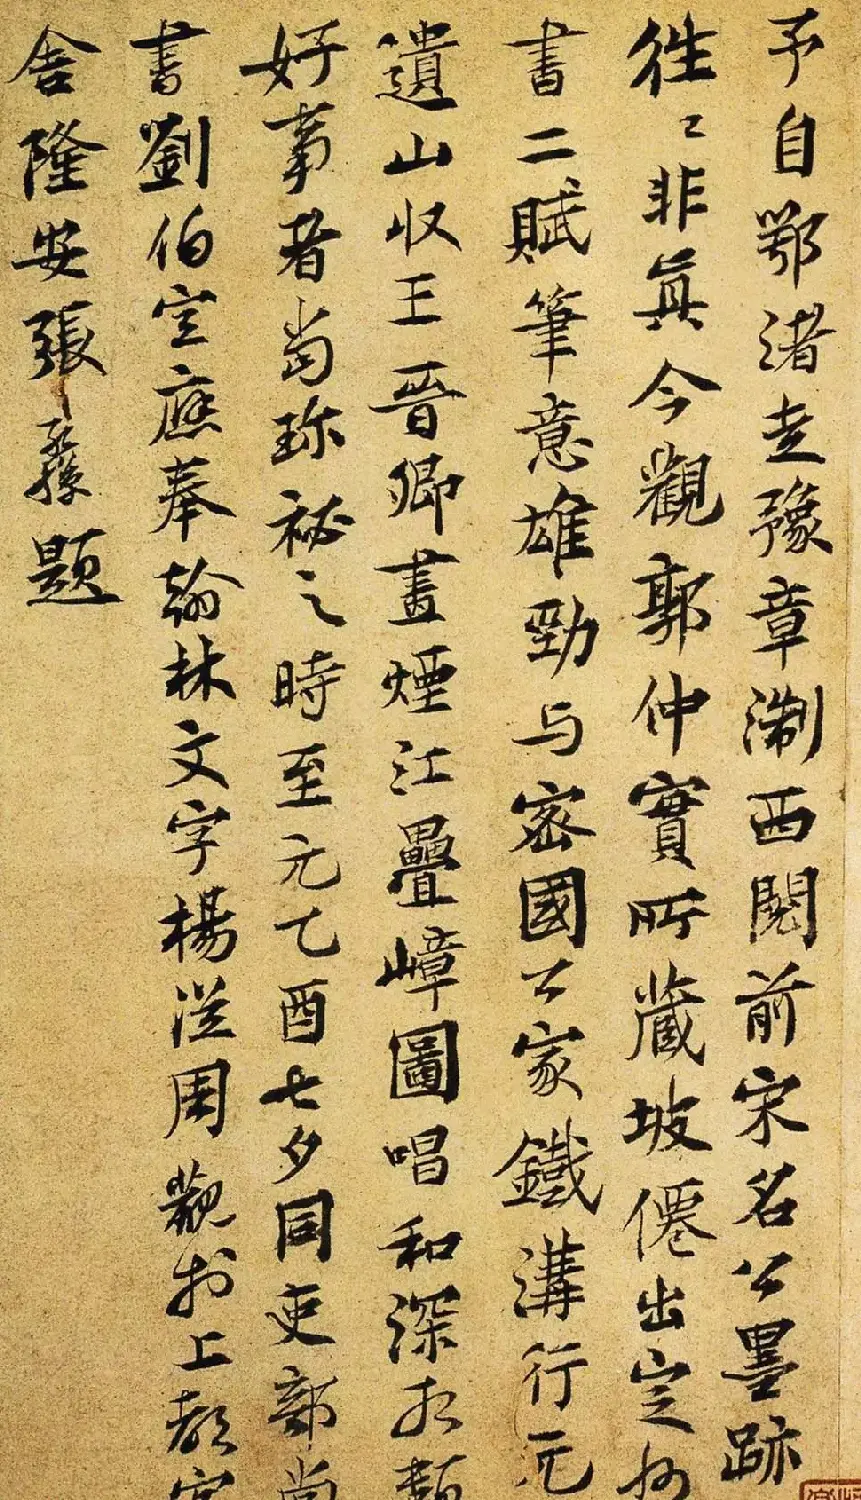 予自鄂渚走豫章淛西閱前宋名公墨跡
往〻非眞今觀郭仲實所藏坡僊出定州
書二賦筆意雄勁与密國公家鐵溝行元
遺山收王晉卿畫煙江疊嶂圖唱和深相類
好事者當珎祕之時至元乙酉七夕同吏部尚
書劉伯宣應奉翰林文字楊從周觀於上都官
舍隆安張孫題